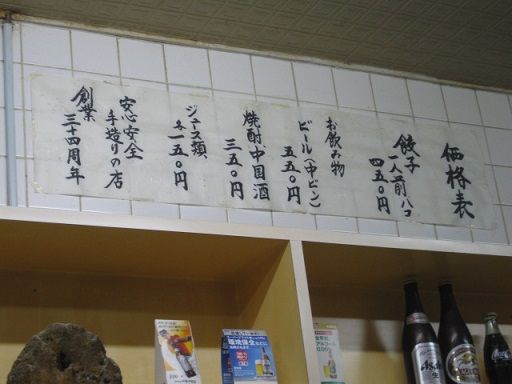 価格表
餃子
一人前八コ
四五〇円
お飲み物
ビール(中ビン)
五五〇円
焼酎、中国酒
三五〇円
ジュース類
各一五〇円
安心安全
手造りの店
創業
三十四周年
環境保全
Asahi
生